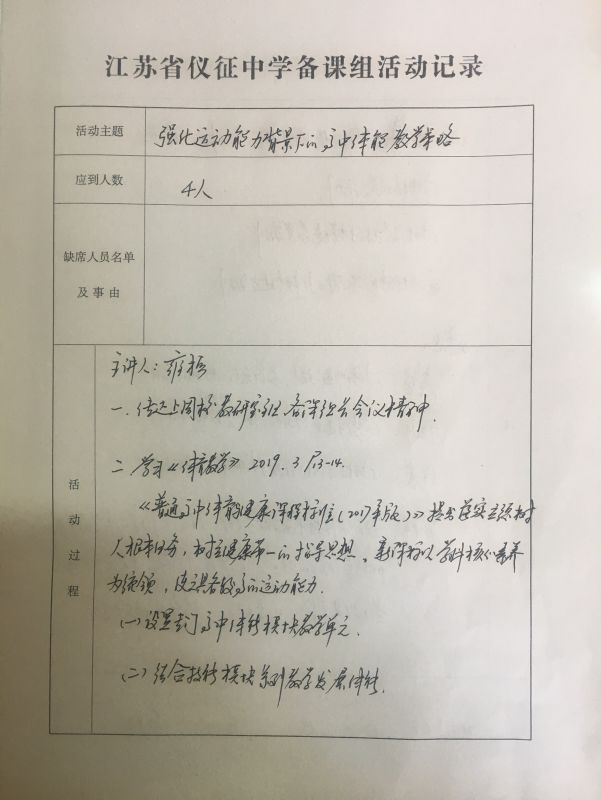 江苏省仪征中学备课组活动记录
活动主题 强化运动能力背景下的高中体能教学策略
应到人数 4人
缺席人员名单
及事由
活动过程
主讲人：
一、传达上周校教研室组备课组长会议精神.
二、学习《体育教学》2019.3 P13-14.
《普通高中体育与健康课程标准（2017年版）》提出落实立德树
人根本任务，树立健康第一的指导思想。新课标以学科核心素养
为统领，使之具备较高的运动能力.
（一）设置专门高中体能模块教学单元.
（二）结合技能模块系列教学发展体能.